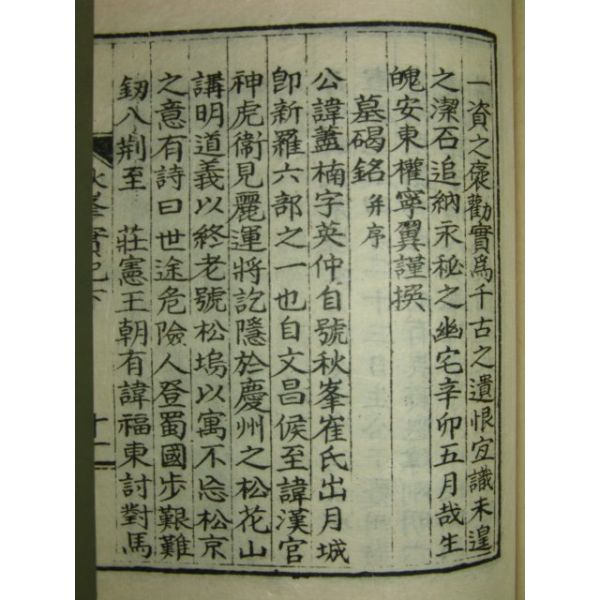 一資之褒勸實爲千古之遺恨宜識未遑
之潔石追納永秘之幽宅辛卯五月哉生
魄安東權寧翼謹撰
墓碣銘 并序
公諱蓋楠字英仲自號秋峯崔氏出月城
卽新羅六部之一也自文昌侯至諱漢官
神虎衛見麗運將訖隱於慶州之松花山
講明道義以終老號松塢以寓不忘松京
之意有詩曰世途危險人登蜀國步艱難
釰八荆至 莊憲王朝有諱福東討對馬
秋峯實紀下 十一